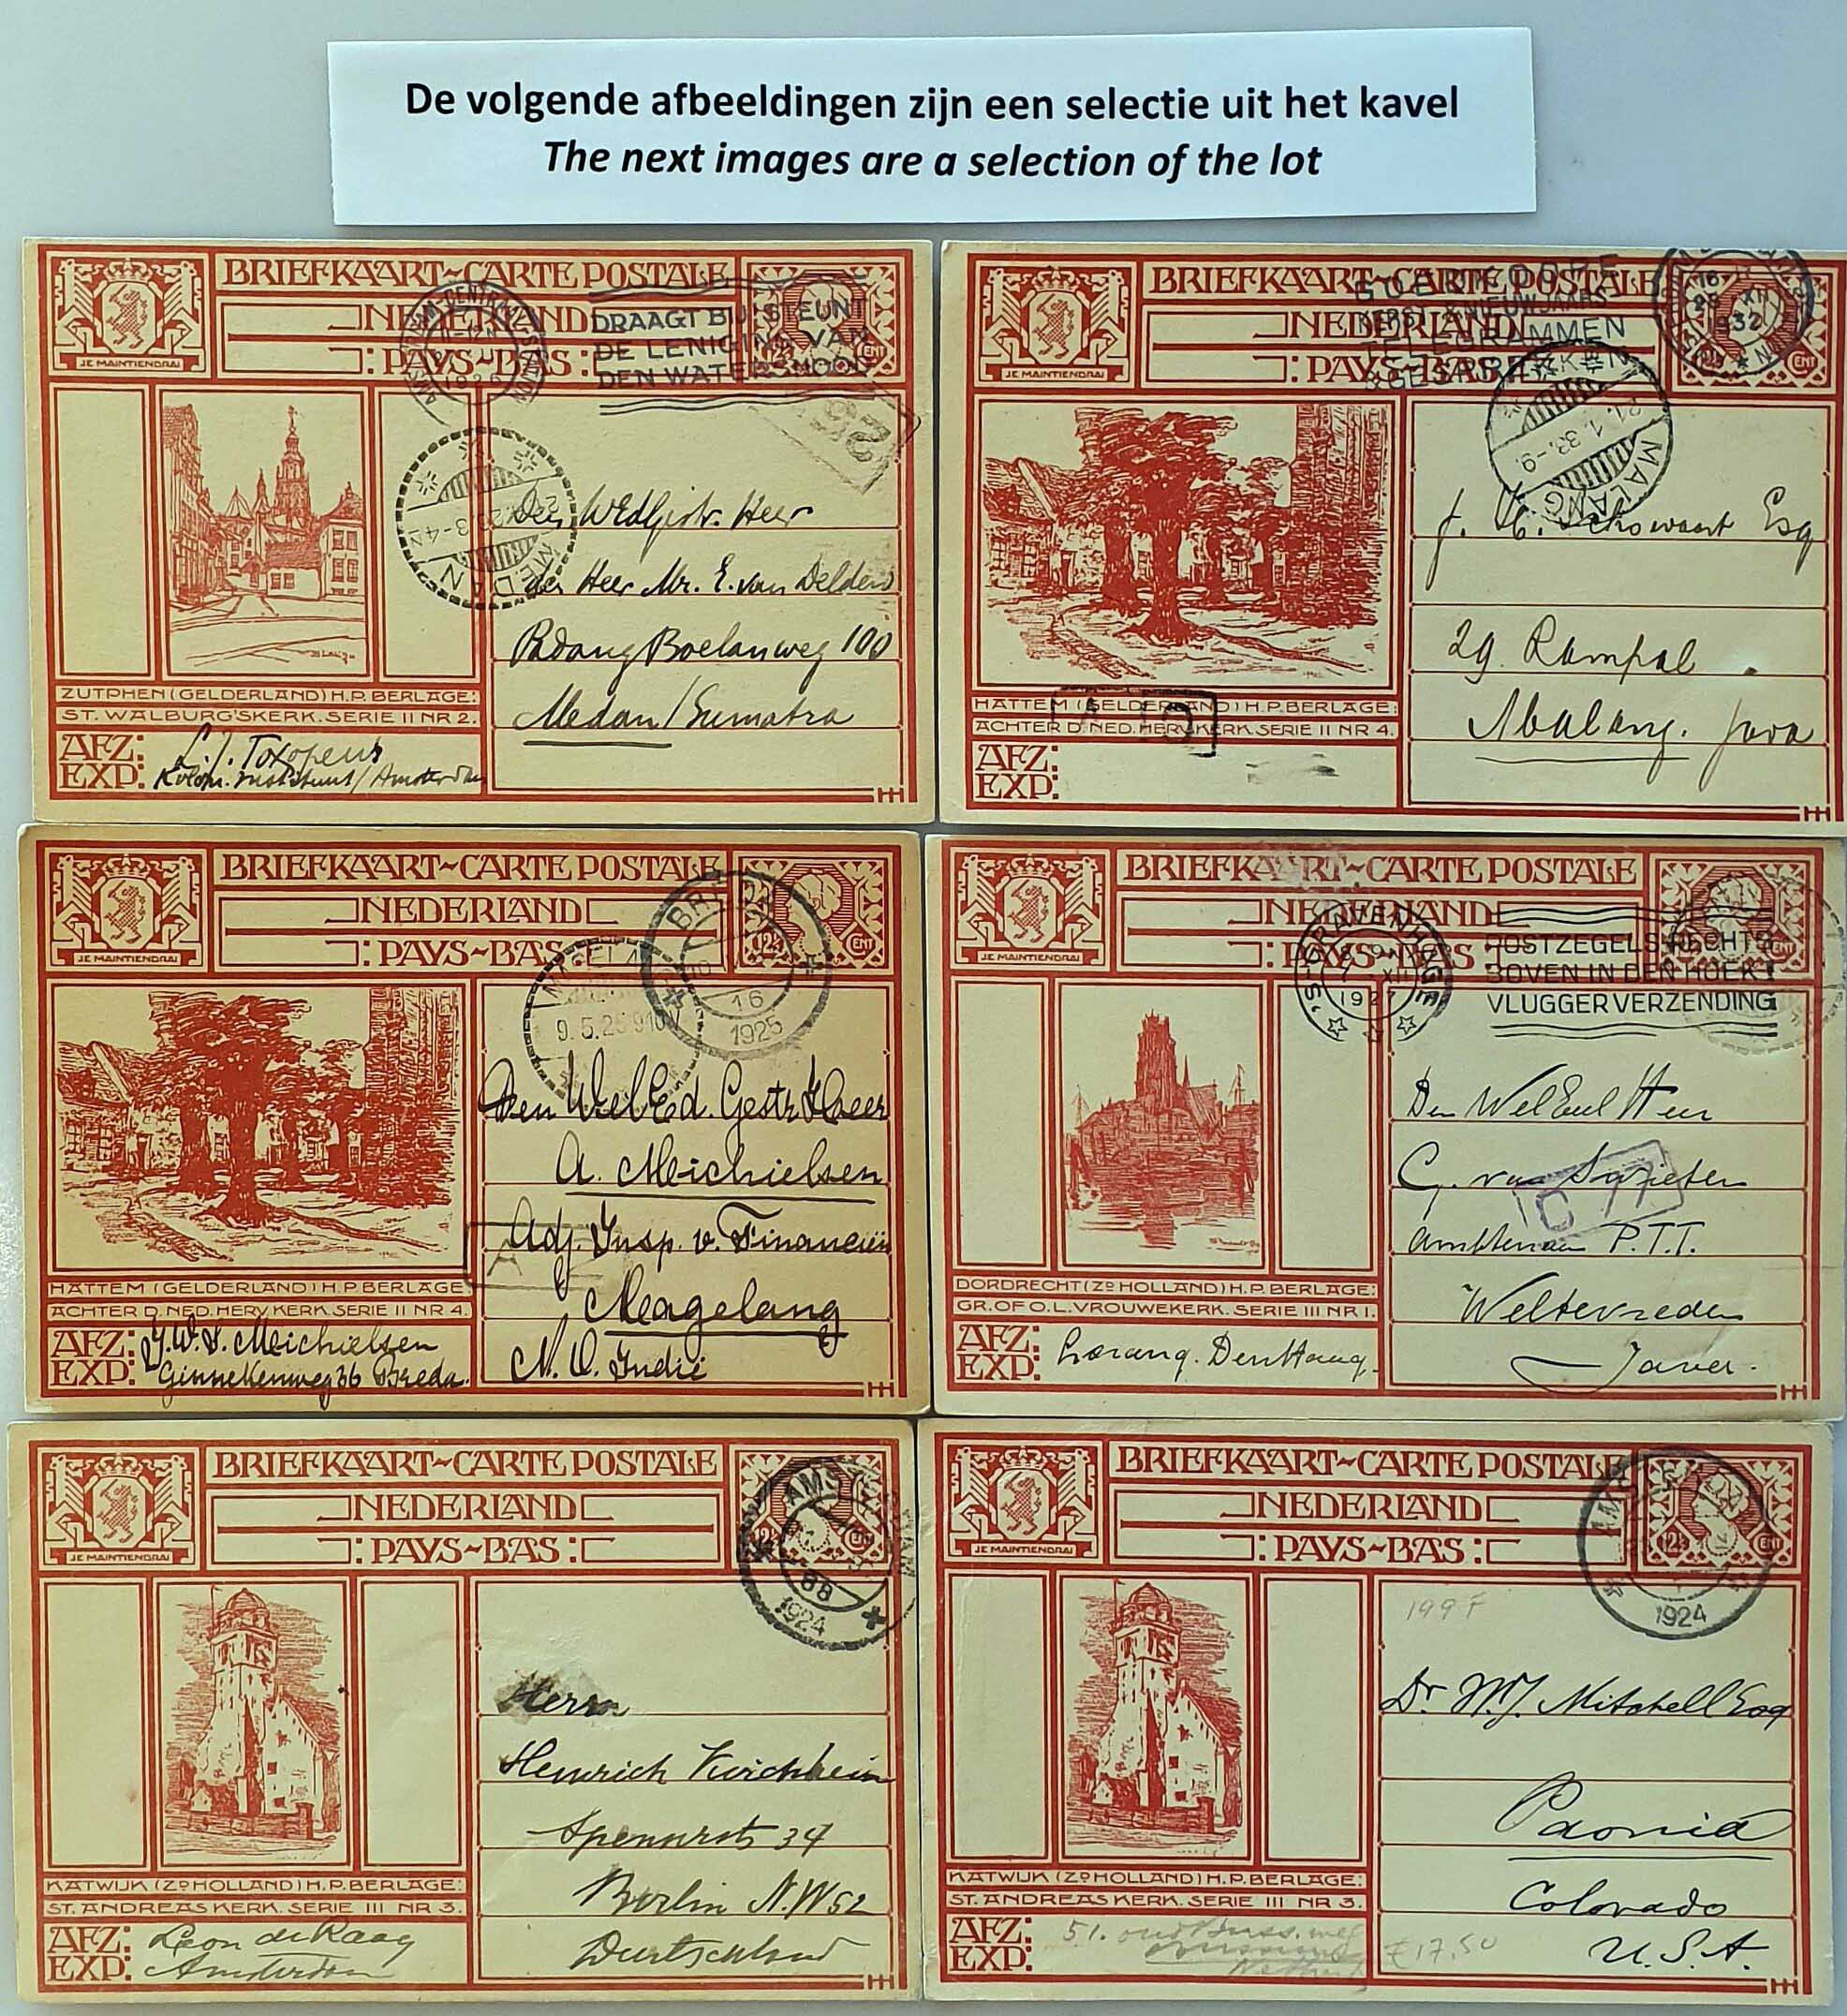 De volgende afbeeldingen zijn een selectie uit het kavel
The next images are a selection of the lot
BRIEFKAART~CARTE POSTALE
NEDERLAND
PAYS~BAS:
JE MAINTIENDRAI
DRAAGT BIJ STEUNT
DE LENIGING VAN
DEN WATERSNOOD
MEDAN
der Heer Mr. E. van Delden
Padang Boelanweg 100
Medan / Sumatra
ZUTPHEN (GELDERLAND) H.P. BERLAGE:
ST. WALBURGSKERK. SERIE II NR 2.
AFZ: L.J. Toxopeus
EXP: Kolon. Instituut / Amsterdam
BRIEFKAART~CARTE POSTALE
NEDERLAND
:PAYS~BAS
JE MAINTIENDRAI
TELEGRAMMEN
1932
MALANG
21.1.33.-9.
Esq
29. Rampal
Malang. Java
HATTEM (GELDERLAND) H.P. BERLAGE:
ACHTER D. NED. HERV. KERK. SERIE II NR 4.
AFZ:
EXP:
BRIEFKAART~CARTE POSTALE
NEDERLAND
:PAYS~BAS
JE MAINTIENDRAI
12½ CENT
BREDA
16
1925
Den WelEd. Gestr. Heer
A. Meichielsen
Adj. Insp. v. Financiën
Magelang
N. O. Indië
HATTEM (GELDERLAND) H.P. BERLAGE:
ACHTER D. NED. HERV. KERK. SERIE II NR 4.
AFZ: J.W.S. Meichielsen
EXP: Ginnekenweg 36 Breda.
BRIEFKAART~CARTE POSTALE
NEDERLAND
PAYS~BAS
JE MAINTIENDRAI
'S-GRAVENHAGE
1927
POSTZEGELS RECHTS
BOVEN IN DEN HOEK!
VLUGGER VERZENDING
Den WelEd Heer
C. van Swieten
Ambtenaar P.T.T.
Weltevreden
Java.
DORDRECHT (ZD HOLLAND) H.P. BERLAGE:
GR. OF O.L. VROUWEKERK. SERIE III NR 1.
AFZ:
EXP: Den Haag.
BRIEFKAART~CARTE POSTALE
NEDERLAND
:PAYS~BAS:
JE MAINTIENDRAI
AMSTERDAM
1924
Herrn
Heinrich Kirchheim
34
Berlin N.W 52
Deutschland
KATWIJK (ZD HOLLAND) H.P. BERLAGE:
ST. ANDREAS KERK. SERIE III NR 3.
AFZ: Leon de Raay
EXP: Amsterdam
BRIEFKAART~CARTE POSTALE
NEDERLAND
:PAYS~BAS:
JE MAINTIENDRAI
AMSTERDAM
1924
199 F
Dr W.J. Mitchell Esq
Paonia
Colorado
U.S.A.
KATWIJK (ZD HOLLAND) H.P. BERLAGE:
ST. ANDREAS KERK. SERIE III NR 3.
AFZ: 51.
EXP:
17,50